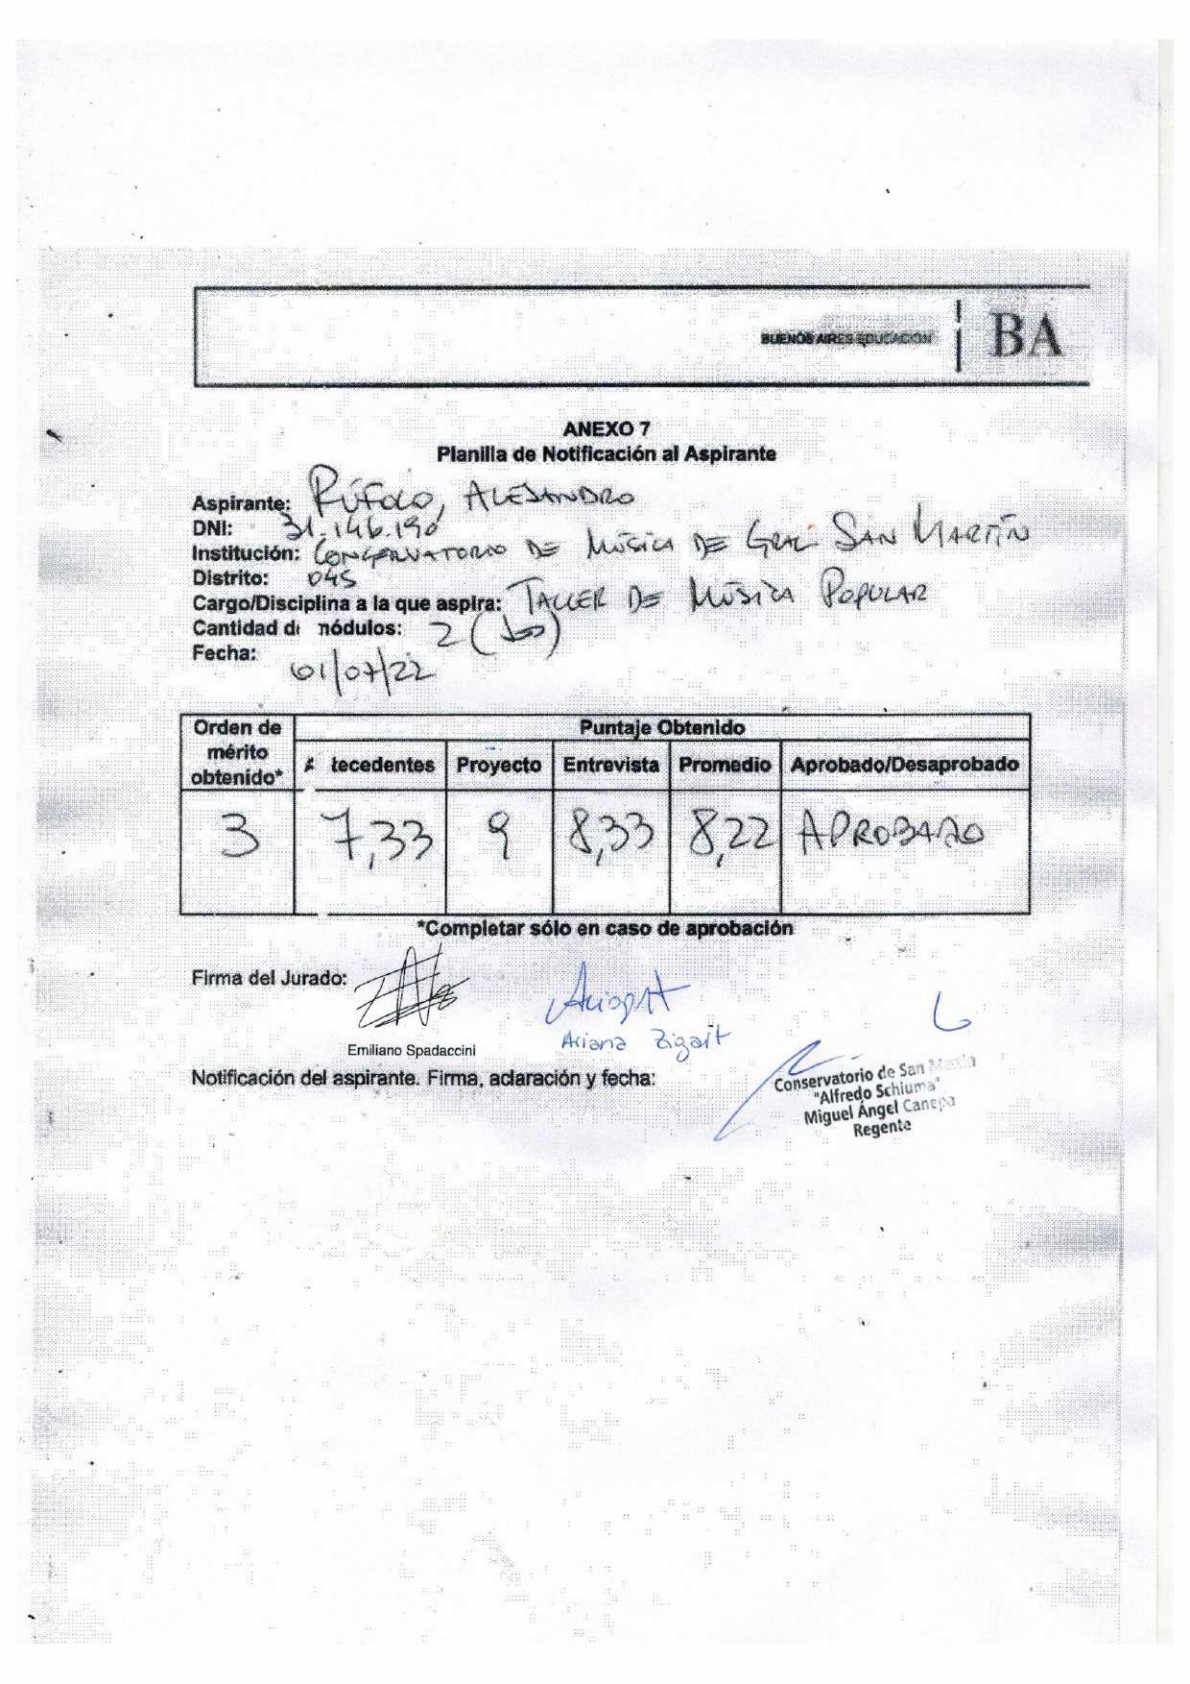 BUENOS AIRES EDUCACIÓN
BA
ANEXO 7
Planilla de Notificación al Aspirante
Aspirante: RÚFOLO, ALEJANDRO
DNI: 31.146.190
Institución: CONSERVATORIO DE MÚSICA DE GRAL SAN MARTÍN
Distrito: 045
Cargo/Disciplina a la que aspira: TALLER DE MÚSICA POPULAR
Cantidad d nódulos: 2 (DOS)
Fecha: 01/07/22
Orden de mérito obtenido*
Puntaje Obtenido
A tecedentes Proyecto Entrevista Promedio Aprobado/Desaprobado
3 7,33 9 8,33 8,22 APROBADO
*Completar sólo en caso de aprobación
Firma del Jurado:
Emiliano Spadaccini
Ariana Zigart
Notificación del aspirante. Firma, aclaración y fecha:
Conservatorio de San Martín
"Alfredo Schiuma"
Miguel Ángel Canepa
Regente